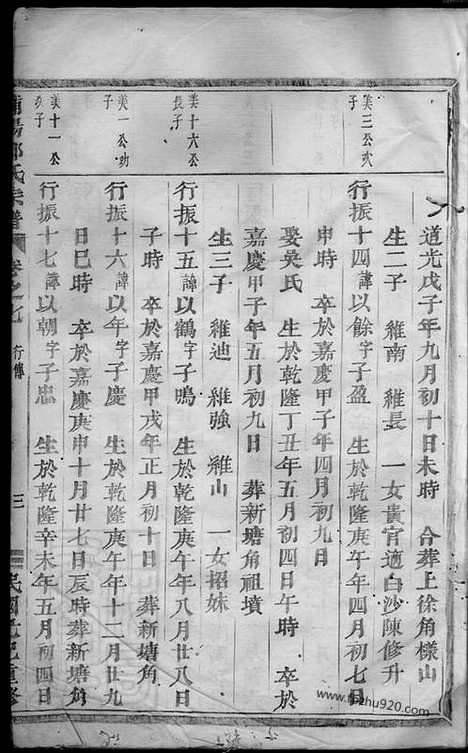 道光戊子年九月初十日未時 合葬上徐角樣山
生二子 維南 維長 一女貴官適白沙陳修升
美三公次子
行振十四諱以餘字子盈 生於乾隆庚午年四月初七日
申時 卒於嘉慶甲子年四月初九日
娶吳氏 生於乾隆丁丑年五月初四日午時 卒於
嘉慶甲子年五月初九日 葬新塘角祖墳
生三子 維迪 維強 維山 一女招妹
美十六公長子
行振十五諱以鶴字子鳴 生於乾隆庚午年八月廿八日
子時 卒於嘉慶甲戌年正月初十日 葬新塘角
美一公幼子
行振十六諱以年字子慶 生於乾隆庚午年十二月廿九
日巳時 卒於嘉慶庚申十月廿七日辰時葬新塘角
美十一公 子
行振十七諱以朝字子忠 生於乾隆辛未年五月初四日
陽 氏宗譜 卷之 行傳 三 民國 重修
920.com